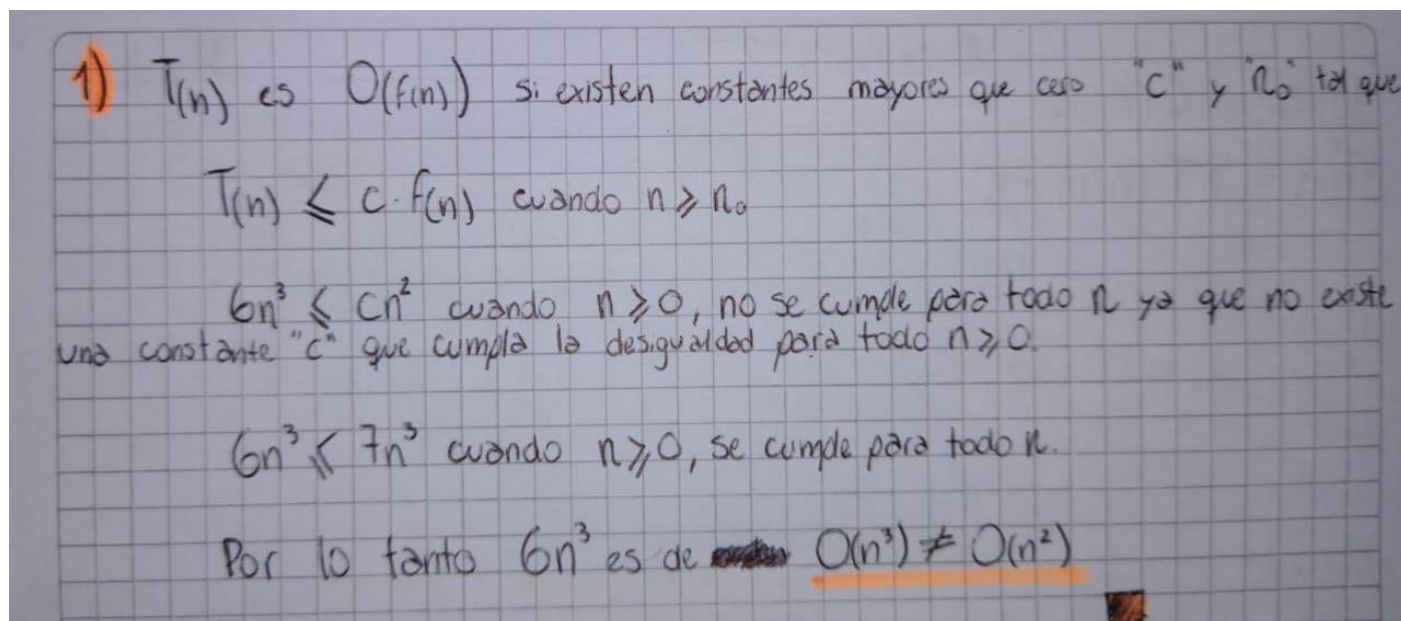 1) T(n) es O(f(n)) si existen constantes mayores que cero "c" y "n₀" tal que
T(n) ≤ c.f(n) cuando n ≥ n₀
6n³ ≤ cn² cuando n ≥ 0, no se cumple para todo n ya que no existe
una constante "c" que cumpla la desigualdad para todo n ≥ 0.
6n³ ≤ 7n³ cuando n ≥ 0, se cumple para todo n.
Por lo tanto 6n³ es de O(n³) ≠ O(n²)